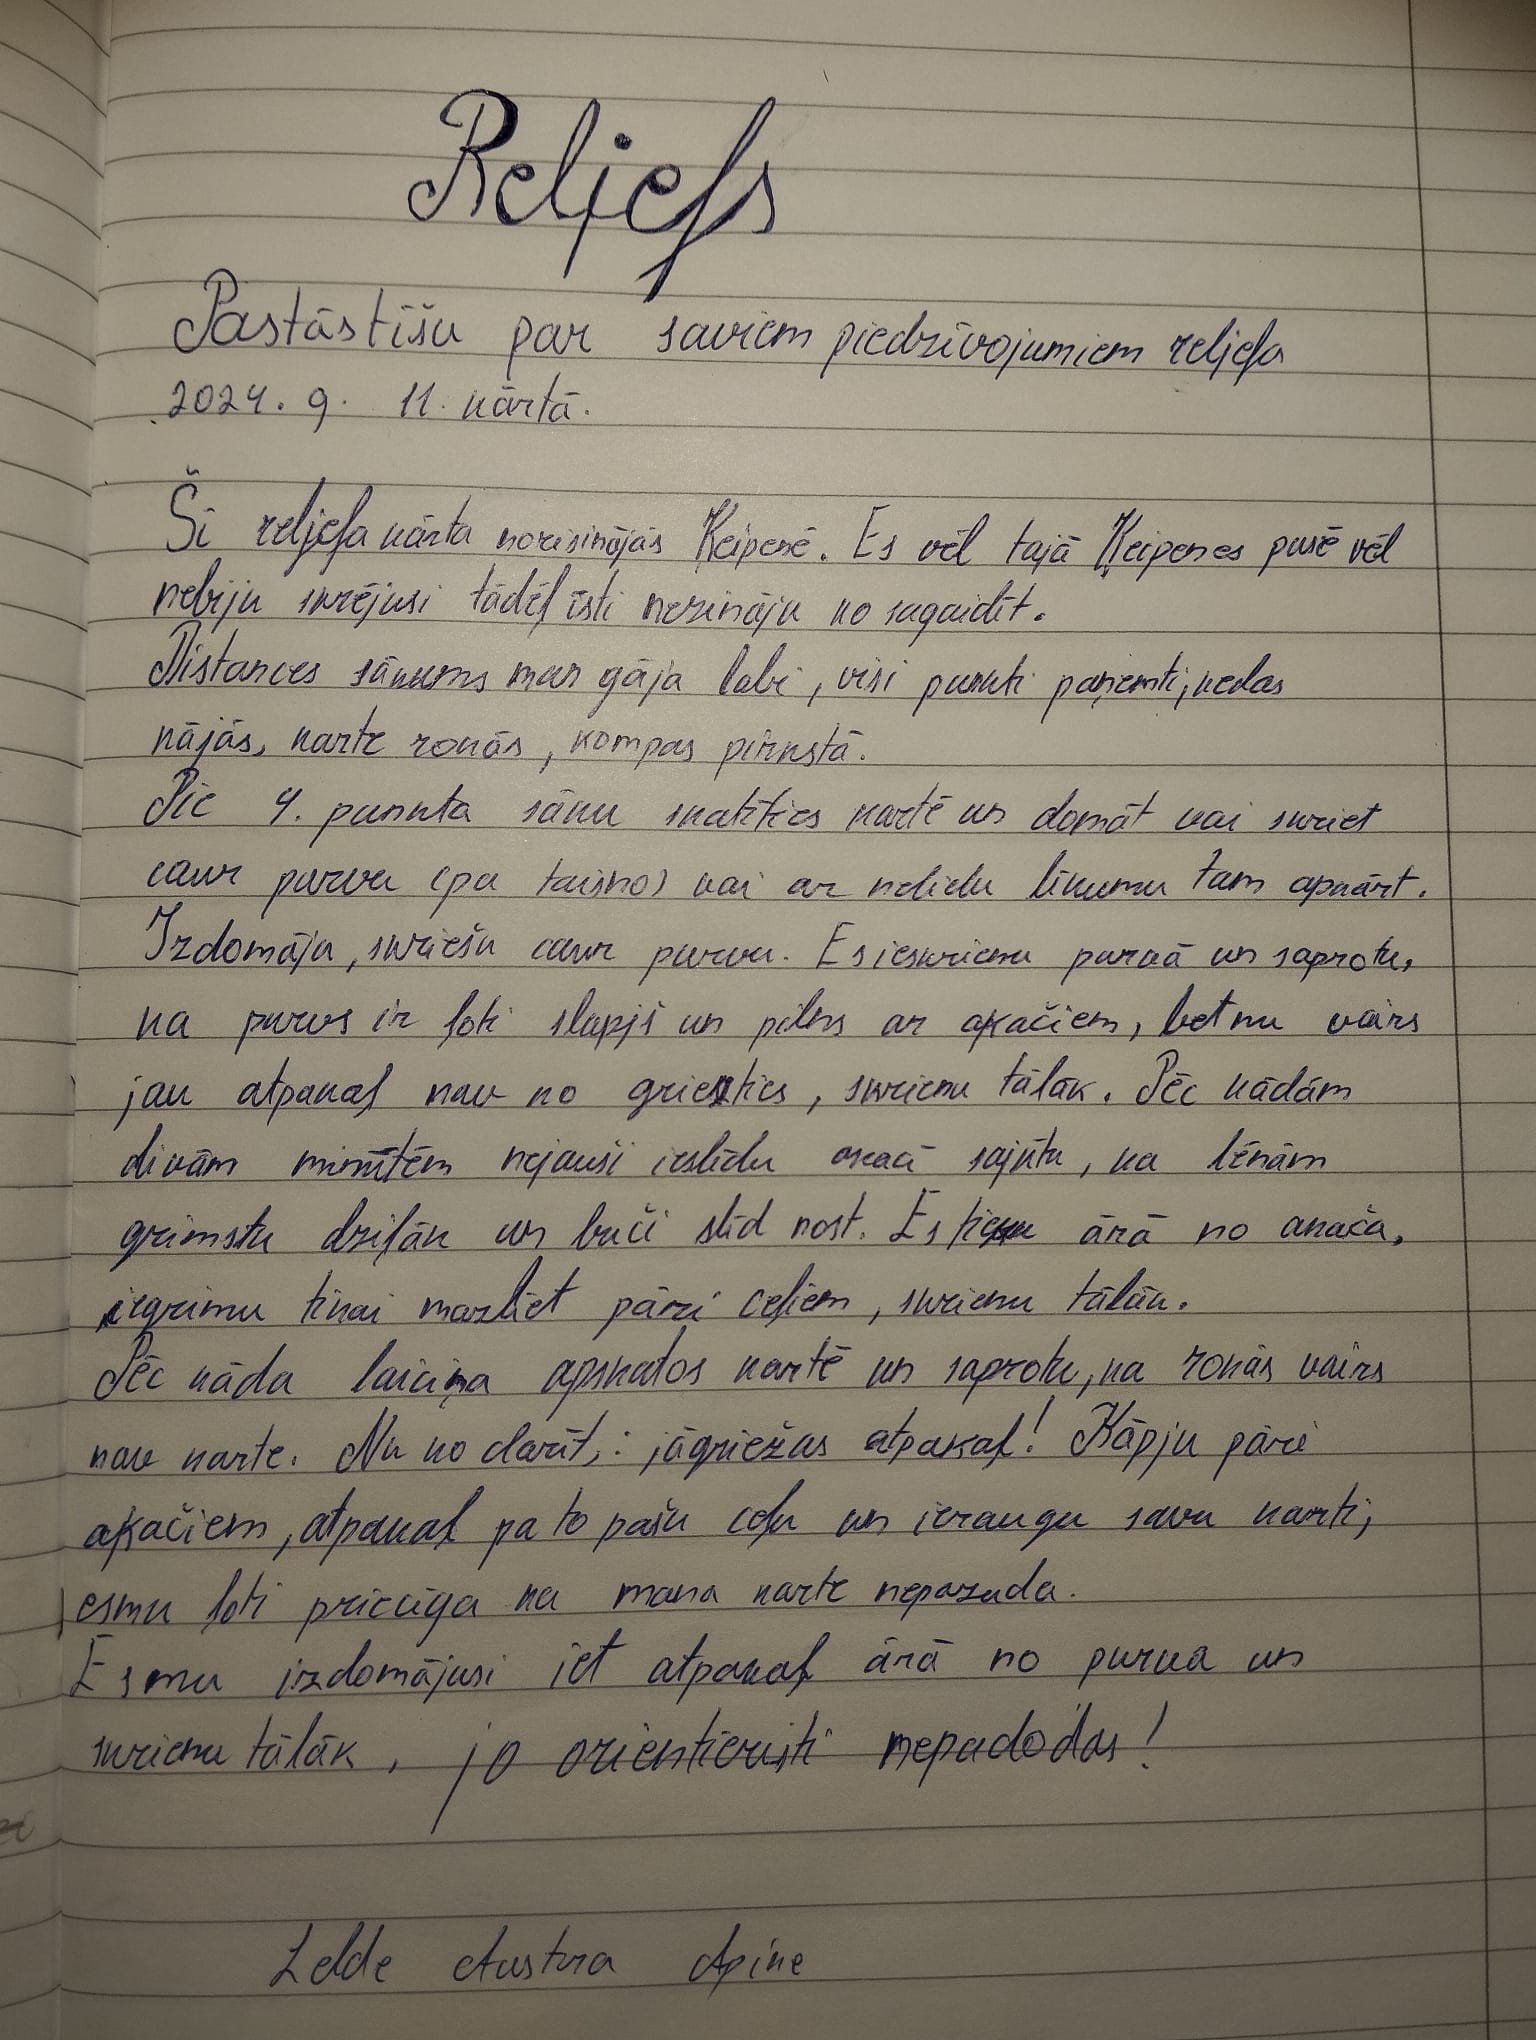 Reljefs
Pastāstīšu par saviem piedzīvojumiem reljefa
2024. g. 11. kārtā.
Šī reljefa kārta norisinājās Ķeipenē. Es vēl tajā Ķeipenes pusē vēl
nebiju skrējusi tādēļ īsti nezināju ko sagaidīt.
Distances sākums man gāja labi, visi punkti paņemti, kedas
kājās, karte rokās, kompas pirkstā.
Pēc 4. punkta sāku skatīties kartē un domāt vai skriet
caur purvu (pa taisno) vai ar nelielu līkumu tam apkārt.
Izdomāju, skriešu caur purvu. Es ieskrienu purvā un saprotu,
ka purvs ir ļoti slapjš un pilns ar akačiem, bet nu vairs
jau atpakaļ nav ko griezties, skrienu tālāk. Pēc kādām
divām minūtēm nejauši ieslīdu akacī sajūtu, ka lēnām
grimstu dziļāk un buči slīd nost. Es tieku ārā no akača,
iegrimu tikai mazliet pāri ceļiem, skrienu tālāk.
Pēc kāda laiciņa apskatos kartē un saprotu, ka rokās vairs
nav karte. Nu ko darīt,: jāgriežas atpakaļ! Kāpju pāri
akačiem, atpakaļ pa to pašu ceļu un ieraugu savu karti,
esmu ļoti priecīga ka mana karte nepazuda.
Esmu izdomājusi iet atpakaļ ārā no purva un
skrienu tālāk, jo orientieristi nepadodas!
Lelde Austra Apine